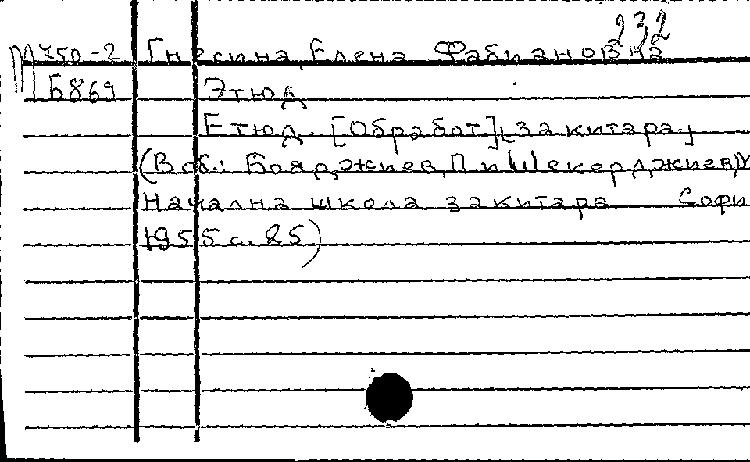 232
М 750-2 Гнесина, Елена Фабиановна
Б869 Этюд
Етюд. [Обработ], за китара,
(В сб.: Бояджиев, П и Шекерджиев, М
Начална школа за китара Софи
1955 с. 25)